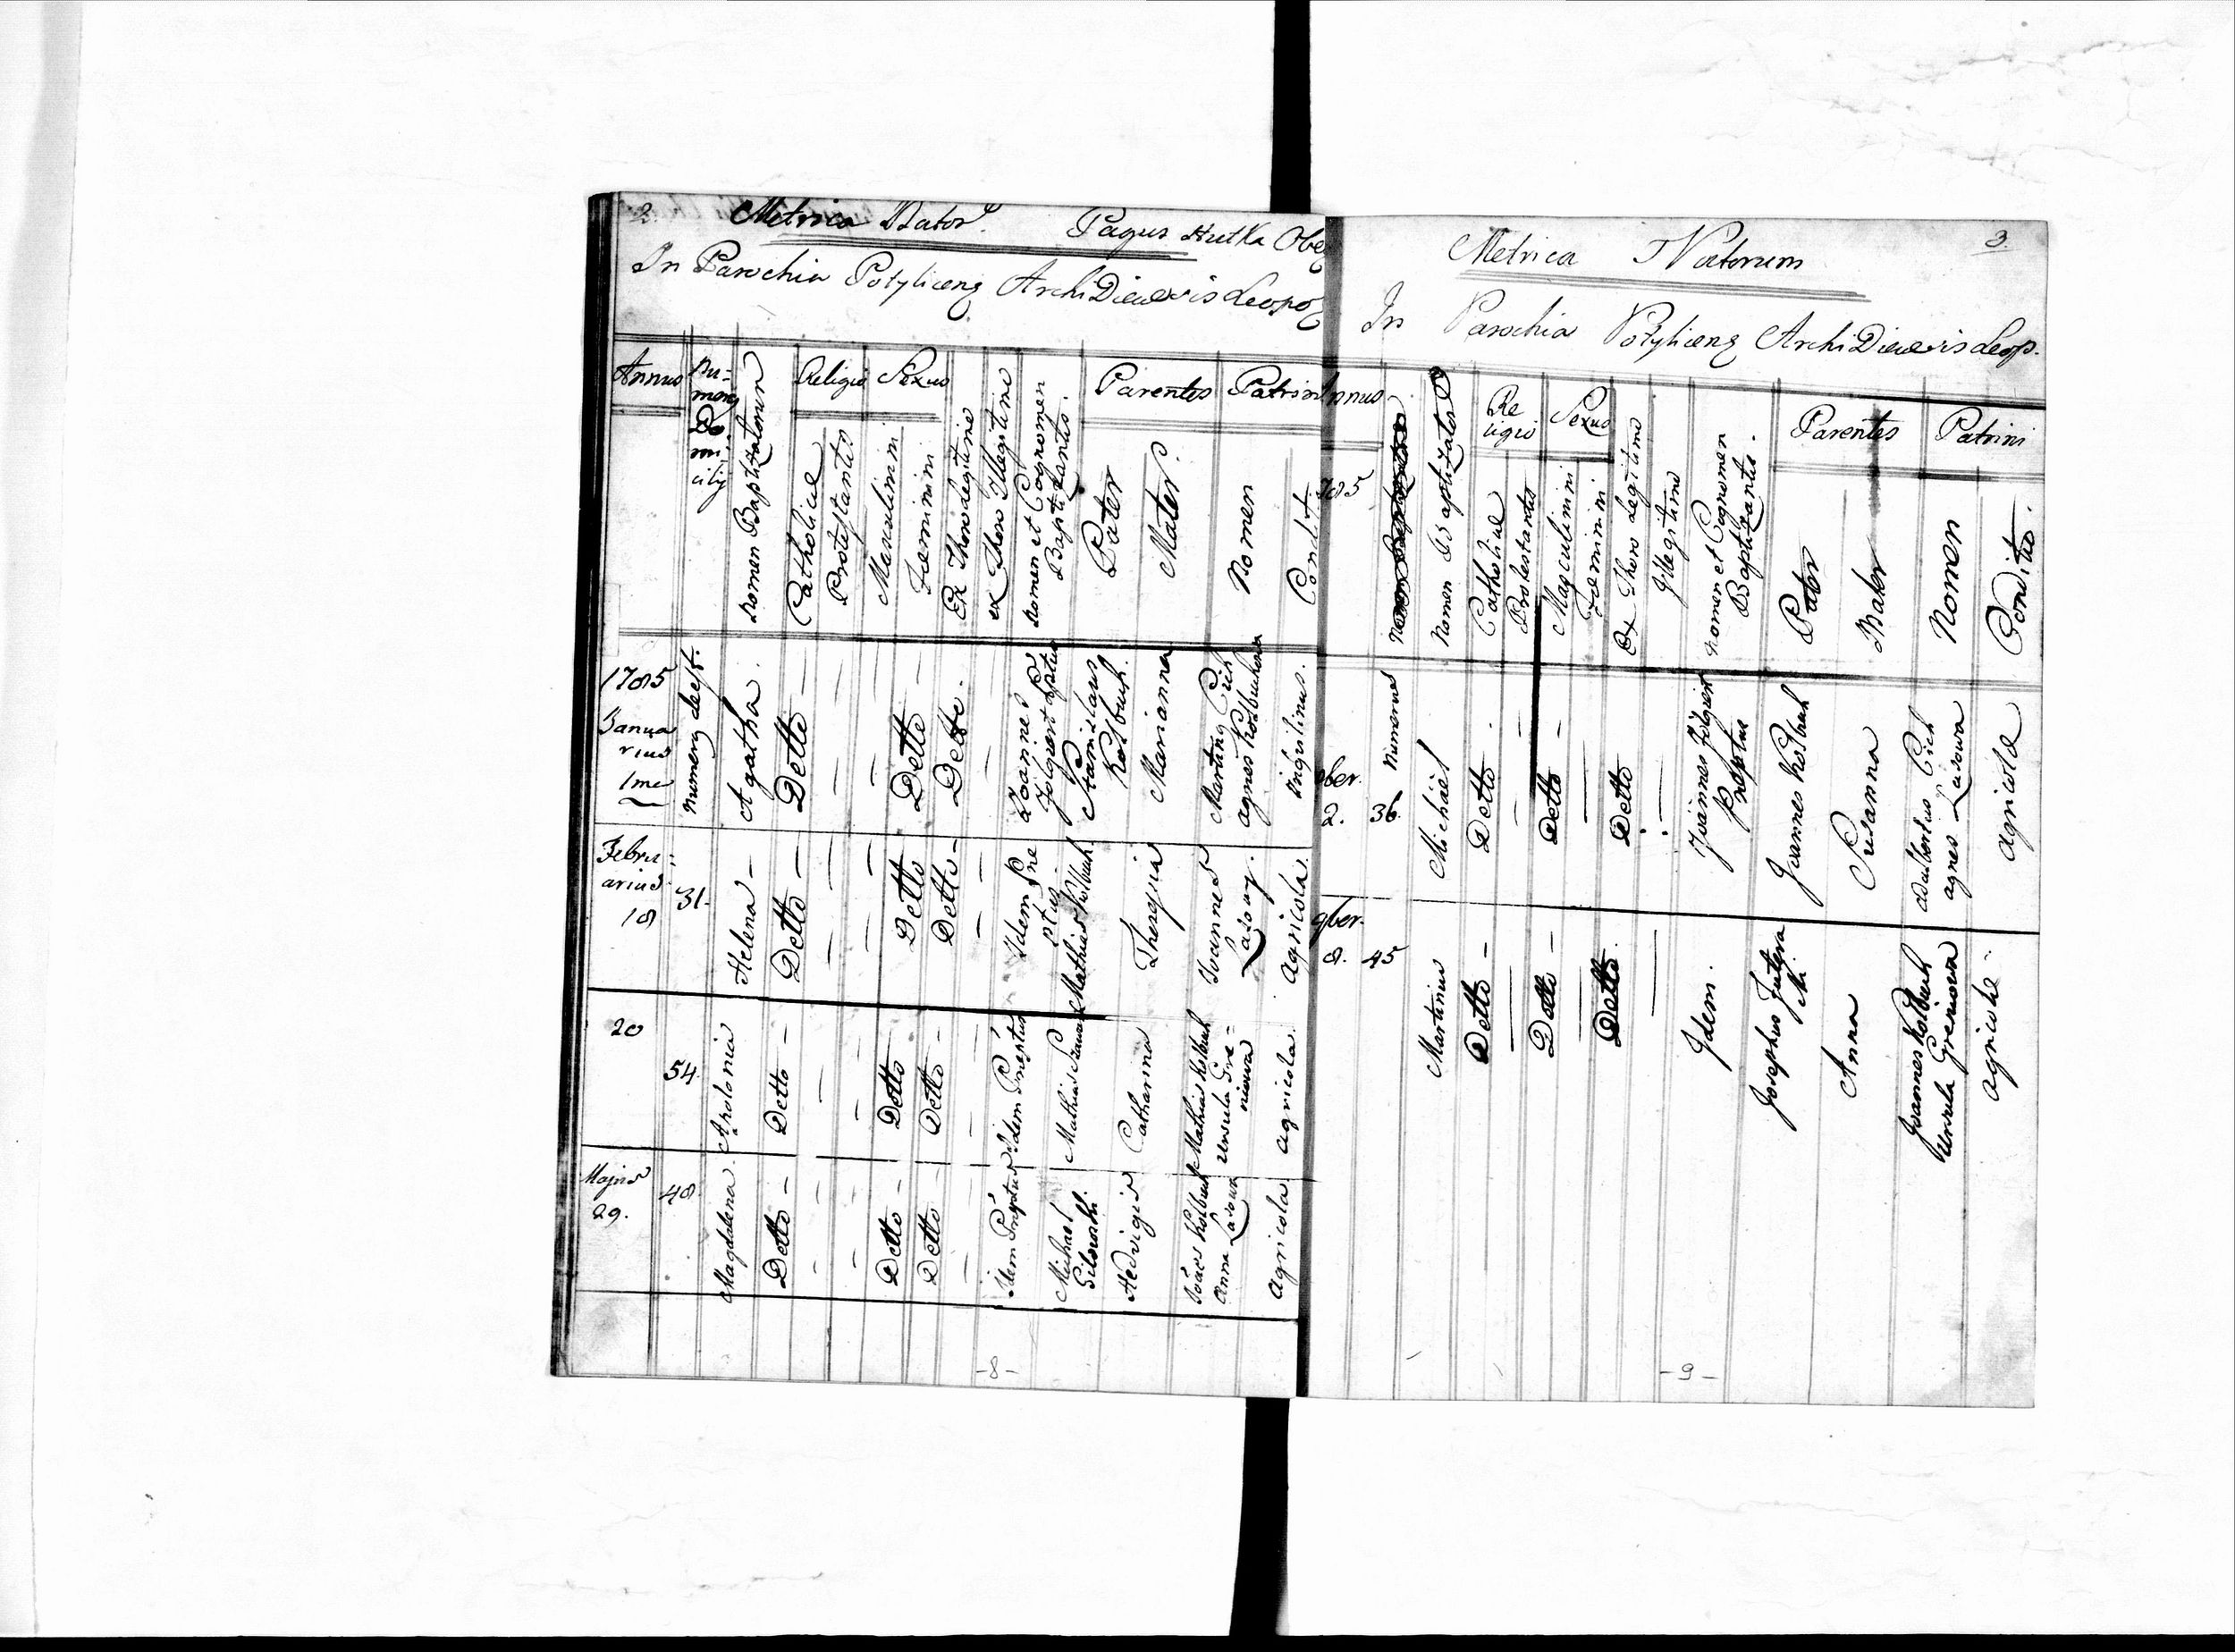 2.
Metrica Nator. Pagus Hutka Obe
In Parochia Potylicens ArchiDiecesis Leopo
Annus
Nu=
merus
Do
mi-
cilij
Nomen Baptizatorum
Religio
Catholicae
Protestantis
Sexus
Masculinini
Foeminini
Ex Thoro legitimo
ex Thoro Illegitimo
Nomen et Cognomen
Baptizantis.
Parentes
Pater
Mater.
Patrini
Nomen
Condit:
1785
Janua
rius
1ma
Numerus deest.
Agatha.
Detto —
Detto —
Detto.
Joannes
Stanislaus
Kolbuch.
Marianna
Martinus Cich
Agnes Kolbuchowa
Inquilinus.
Febru=
arius
18
31.
Helena —
Detto —
Detto —
Detto —
Idem Prae
ptus.
Mathias Kolbuch
Theresia
Joannes
Lasowy.
Agricola.
20
54.
Apolonia
Detto —
Detto —
Detto —
Idem Praeptus
Mathias
Catharina
Mathias Kolbuch
Ursula Gre=
niowa
Agricola.
Majus
29.
48.
Magdalena.
Detto —
Detto —
Detto —
Idem Praeptus
Michael
Hedvigis
Kolbuch
Anna Lasowa
Agricola
-8-
3.
Metrica Natorum
In Parochia Potylicens ArchiDiecesis Leop.
Annus
1785
Nomen Baptizator
Re
ligio
Catholicae
Protestantis
Sexus
Masculinini
Foeminini
Ex Thoro Legitimo
Illegitimo
Nomen et Cognomen
Baptizantis.
Parentes
Pater
Mater
Patrini
Nomen
Conditio.
8ber.
2.
Numerus
36.
Michael
Detto
Detto
Detto
Joannes
Praeptus
Joannes Kolbuch
Susanna
Adalbertus Cich
Agnes Lasowa
Agricola
9ber.
8.
45
Martinus
Detto —
Detto —
Detto.
Idem.
Josephus
Anna
Joannes Kolbuch
Ursula Greniowa
Agricolae.
-9-